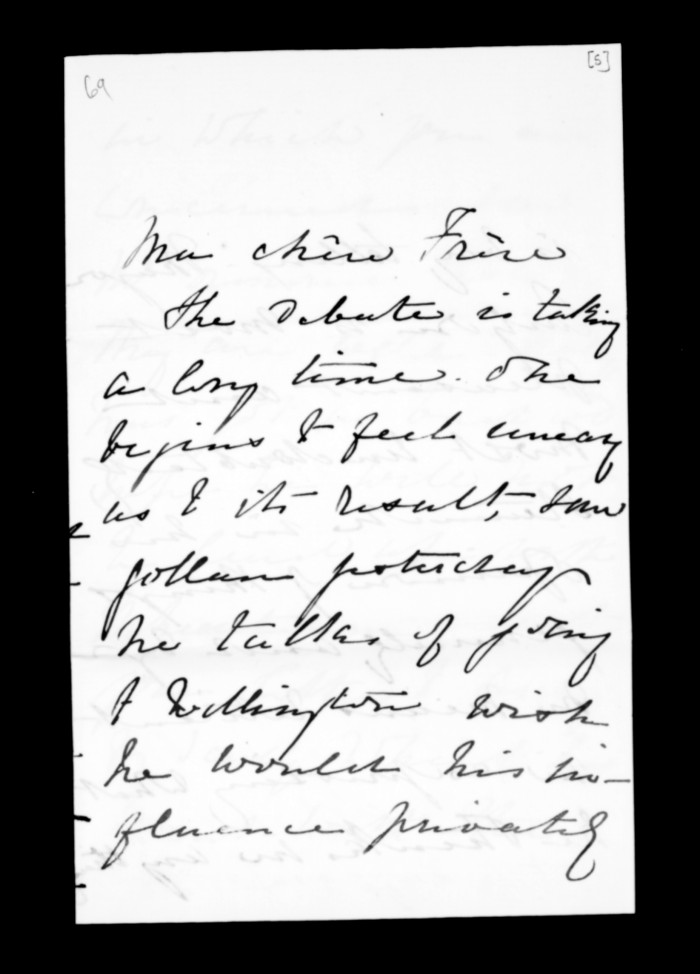 69
[5]
Ma chère Frère
the Debate is taking
a long time. One
begins to feel uneasy
as to its result, saw
Gollan yesterday
he talks of going
to Wellington wish
he would his in-
fluence privately